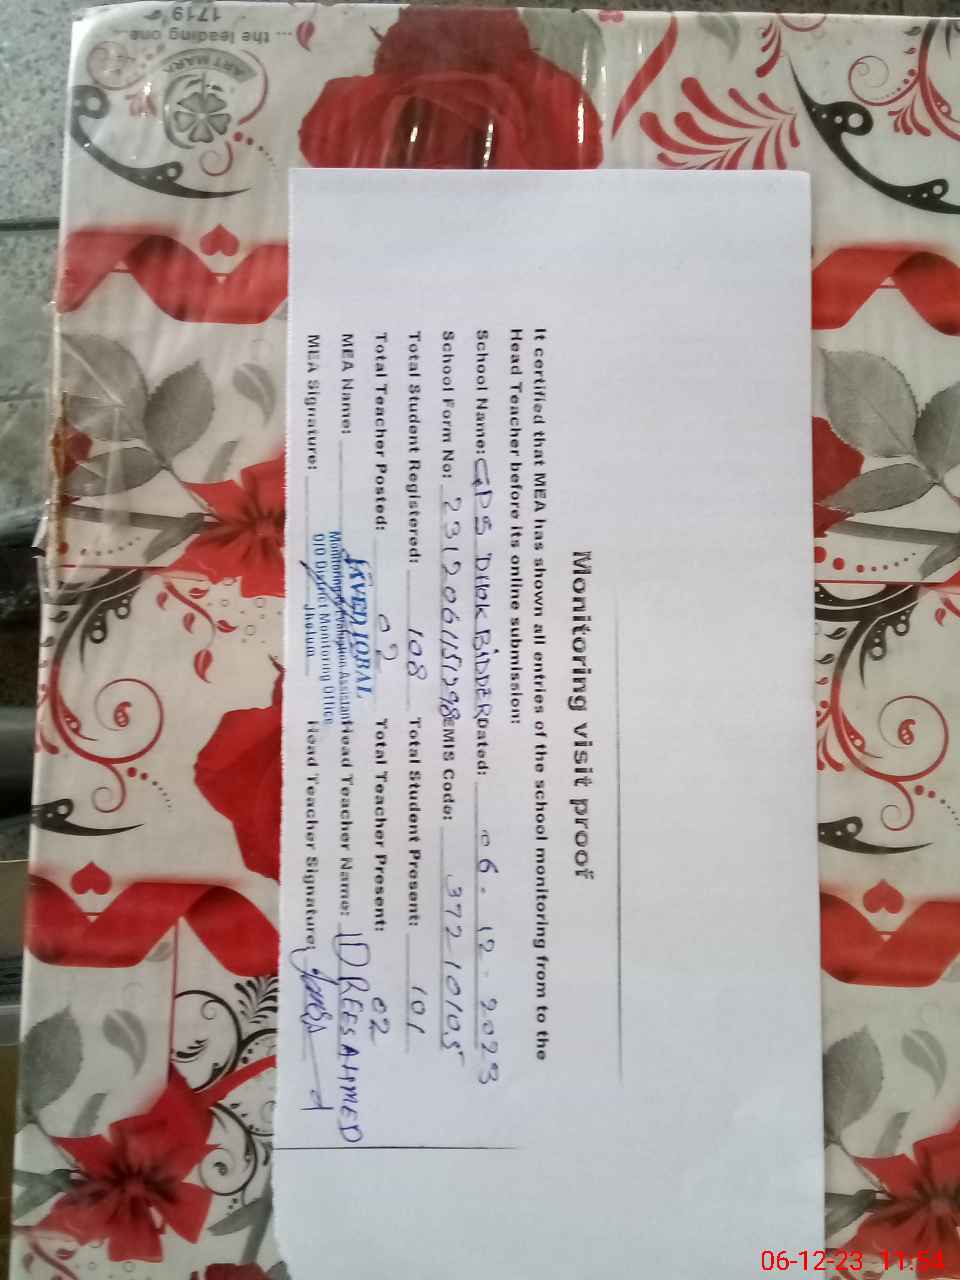 Monitoring visit proof
It certified that MEA has shown all entries of the school monitoring from to the
Head Teacher before its online submission:
School Name: GPS DHOK BIDDER Dated: 06-12-2023
School Form No: 231206151298 EMIS Code: 37210105
Total Student Registered: 108 Total Student Present: 101
Total Teacher Posted: 02 Total Teacher Present: 02
MEA Name: JAVED IQBAL Head Teacher Name: IDREES AHMED
Monitoring & Evaluation Assistant
O/O District Monitoring Office
Jhelum
MEA Signature: Head Teacher Signature:
ART MARK
... the leading one...
1719
06-12-23 11:54